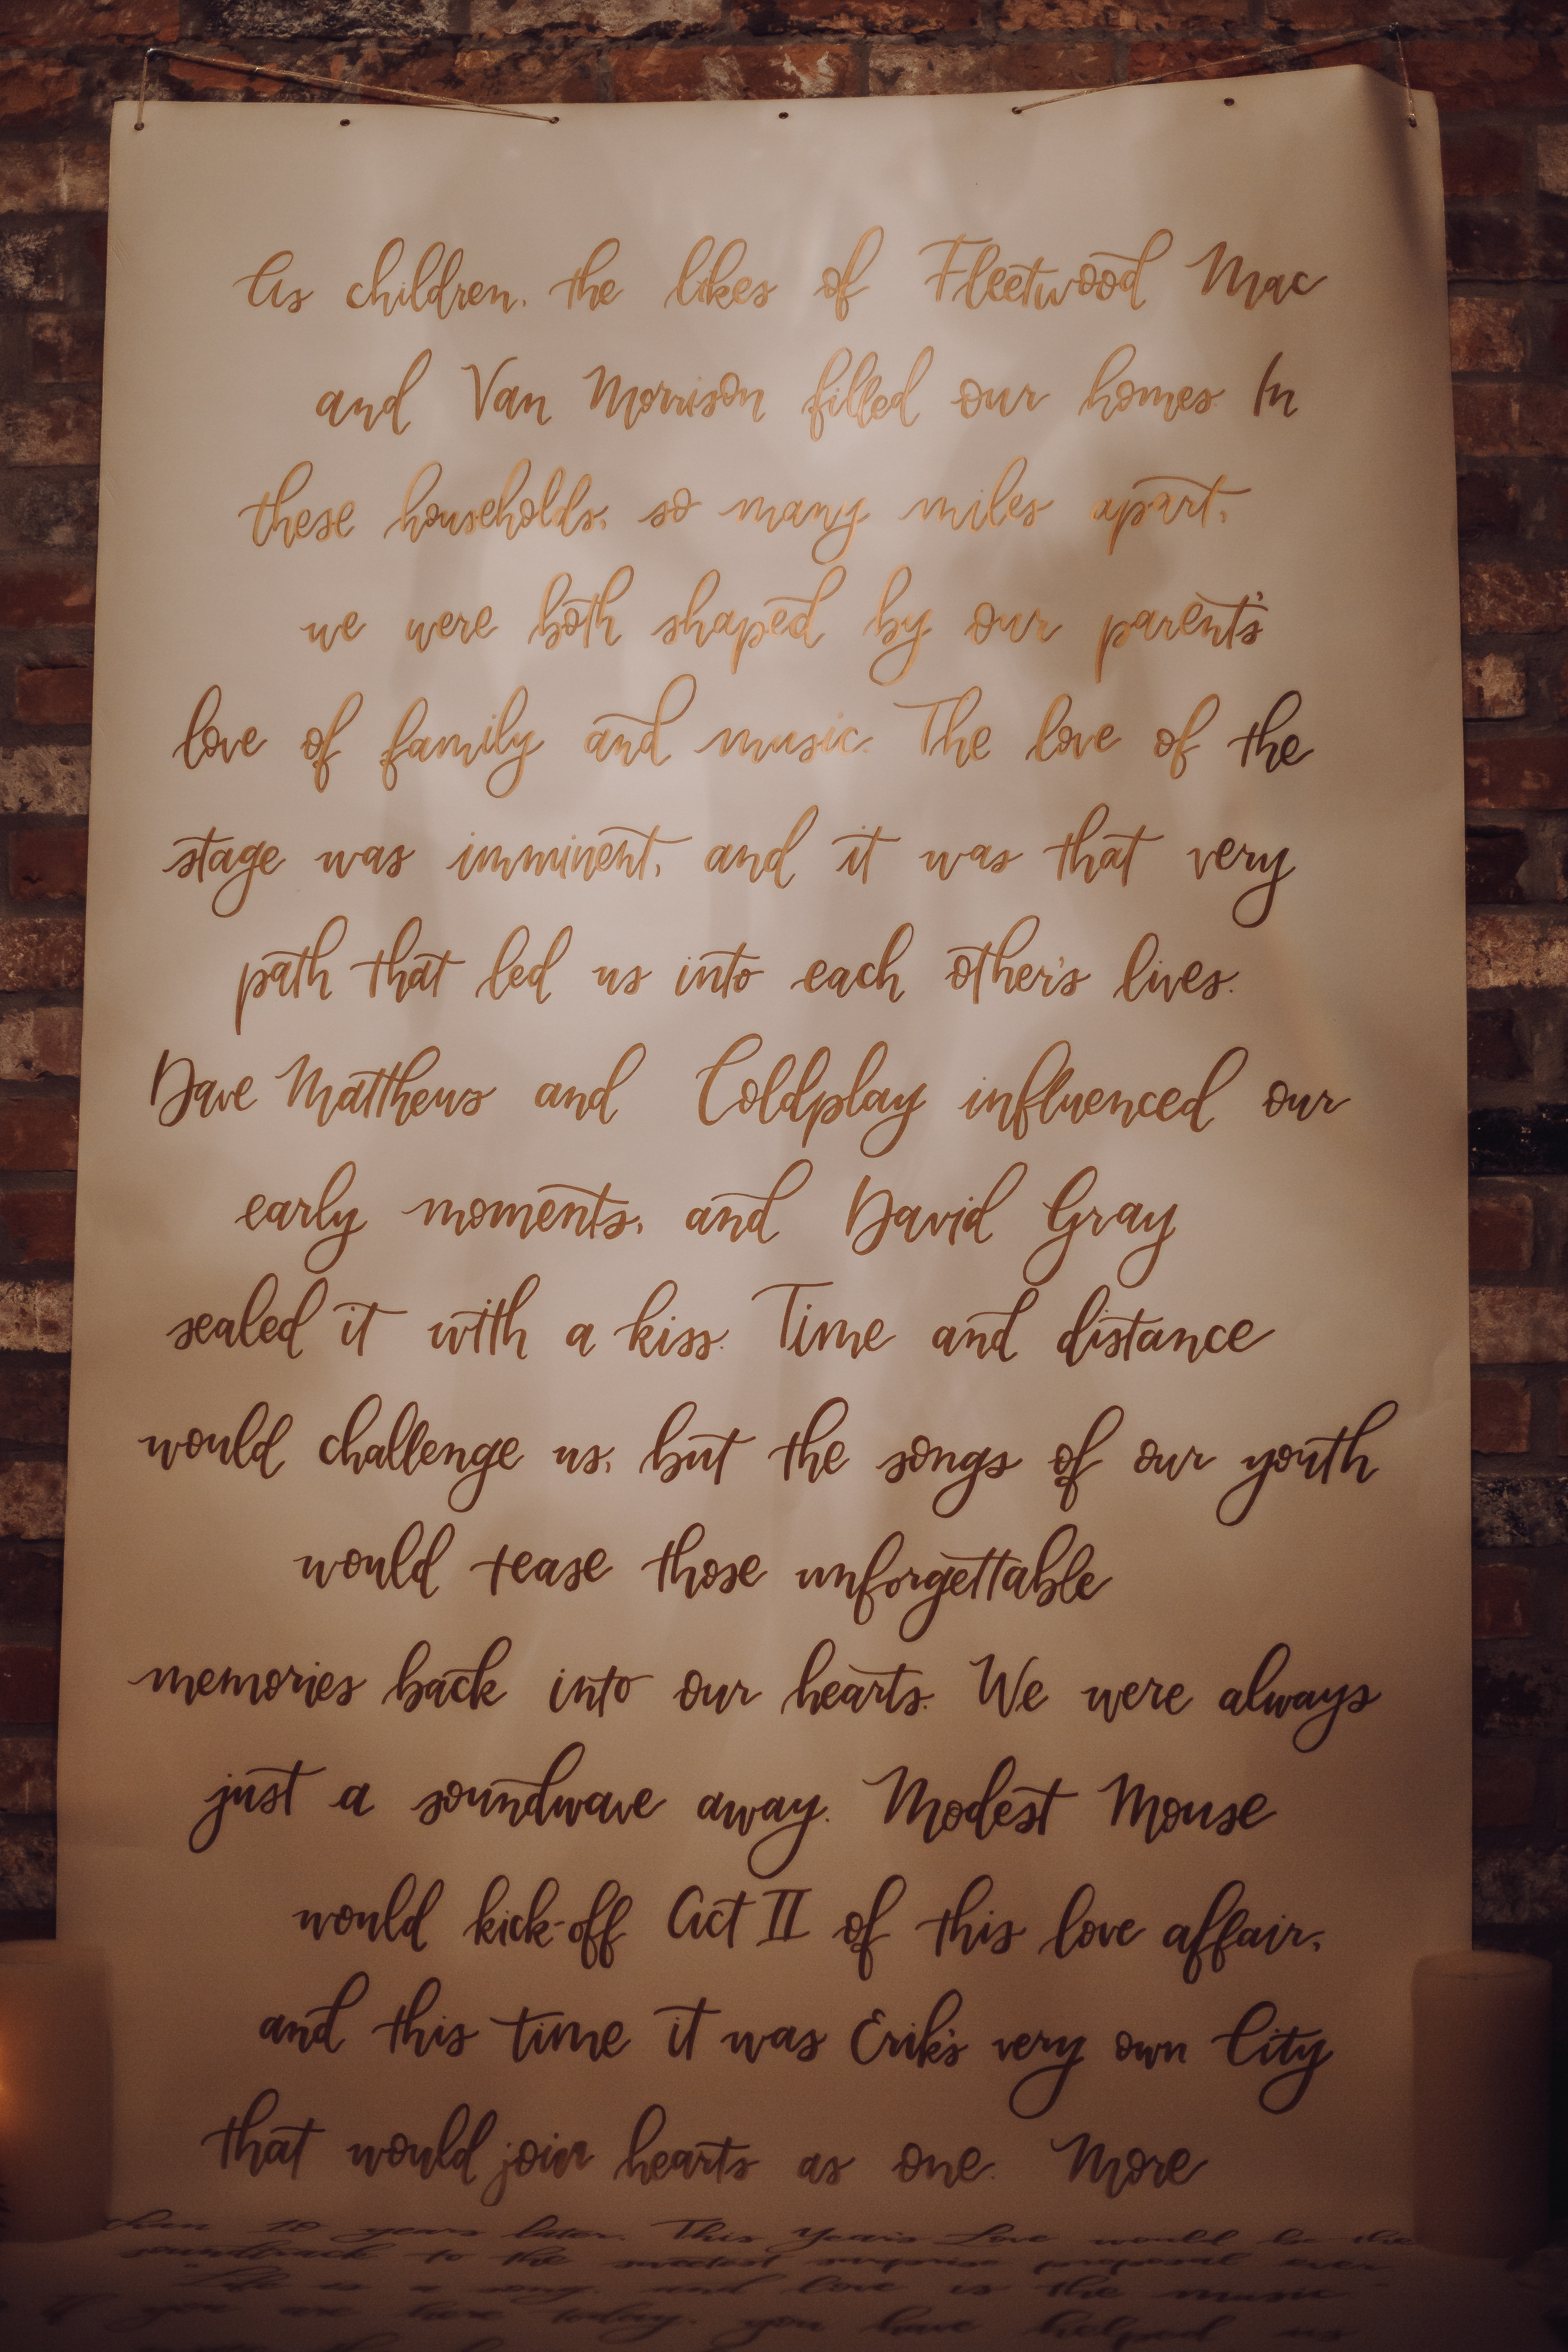 As children, the likes of Fleetwood Mac
and Van Morrison filled our homes. In
these households, so many miles apart,
we were both shaped by our parent's
love of family and music. The love of the
stage was imminent, and it was that very
path that led us into each other's lives.
Dave Matthews and Coldplay influenced our
early moments, and David Gray
sealed it with a kiss. Time and distance
would challenge us, but the songs of our youth
would tease those unforgettable
memories back into our hearts. We were always
just a soundwave away. Modest Mouse
would kick-off Act II of this love affair,
and this time it was Erik's very own City
that would join hearts as one. More
than 10 years later, This Year's Love would be the
soundtrack to the sweetest surprise proposal ever.
"Life is a song, and love is the music."
If you are here today, you have helped us